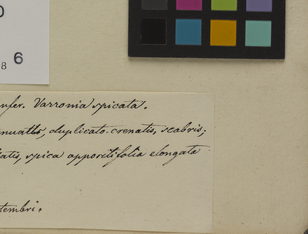 0
8 6
nfer. Varronia spicata.
nuatis, duplicato-crenatis, scabris;
atis, spica oppositifolia elongata
tembri.